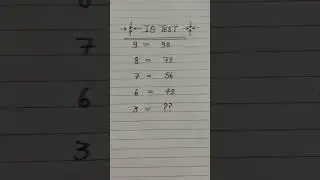 IQ TEST
9 = 90
8 = 72
7 = 56
6 = 42
3 = ??
7
6
3